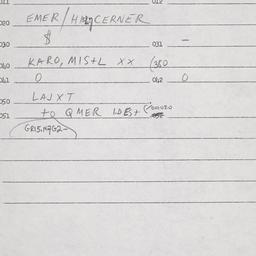 011 012
020 EMER/HA CERNER
$
030 031 -
040 KARO, MIS+L XX (360
041 0 042 0
050 LAJXT
051 to QMER
GR15.M7G2-